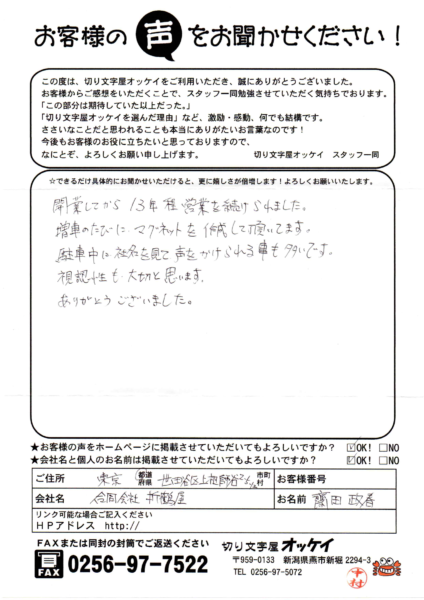 お客様の声をお聞かせください！
この度は、切り文字屋オッケイをご利用いただき、誠にありがとうございました。
お客様からご感想をいただくことで、スタッフ一同勉強させていただく気持ちでおります。
「この部分は期待していた以上だった。」
「切り文字屋オッケイを選んだ理由」など、激励・感動、何でも結構です。
ささいなことだと思われることも本当にありがたいお言葉なのです！
今後もお客様のお役に立ちたいと思っておりますので、
なにとぞ、よろしくお願い申し上げます。 切り文字屋オッケイ スタッフ一同
☆できるだけ具体的にお聞かせいただけると、更に嬉しさが倍増します！よろしくお願いいたします。
開業してから13年程営業を続けられました。
増車のたびにマグネットを作成して頂いてます。
駐車中に社名を見て声をかけられる事も多いです。
視認性も大切と思います。
ありがとうございました。
★お客様の声をホームページに掲載させていただいてもよろしいですか？ ☑OK! □NO
★会社名と個人のお名前は掲載させていただいてもよろしいですか？ ☑OK! □NO
ご住所 東京 都道府県 世田谷区上祖師谷 市町村 お客様番号
会社名 合同会社 新鶴屋 お名前 田 政春
リンク可能な場合ご記入ください
HPアドレス http://
FAXまたは同封の封筒でご返送ください
FAX 0256-97-7522
切り文字屋オッケイ
〒959-0133 新潟県燕市新堀 2294-3
TEL 0256-97-5072